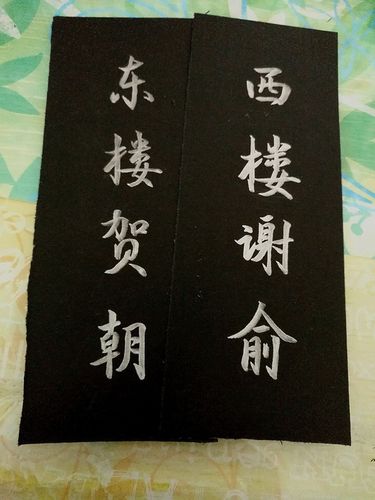 西楼谢俞
东楼贺朝